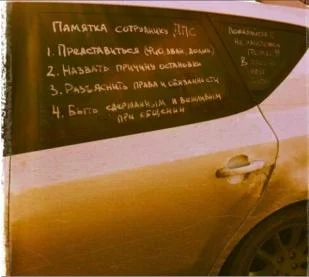 Памятка сотруднику ДПС
1. Представиться (ФИО, зван, должн)
2. Назвать причину остановки
3. Разъяснить права и обязанности
4. Быть сдержанным и вежливым
при общении
Пожалуйста
не
В